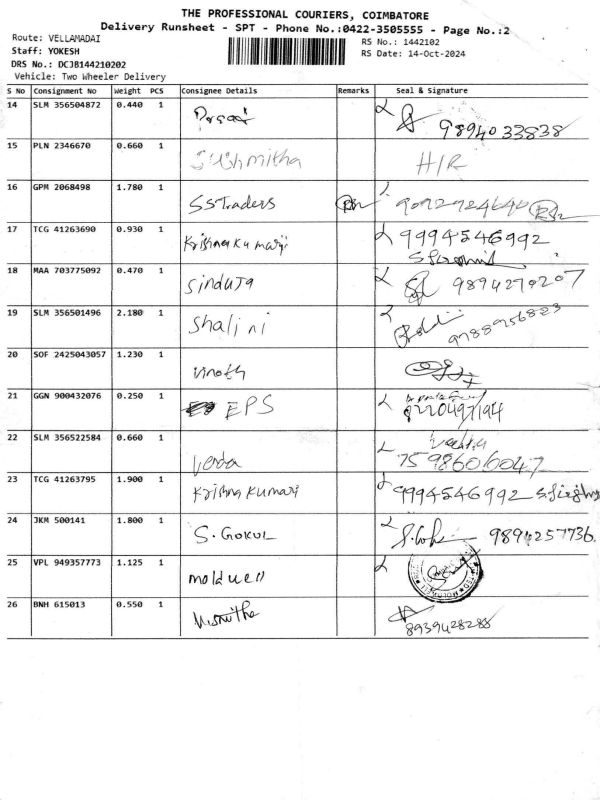 THE PROFESSIONAL COURIERS, COIMBATORE
Delivery Runsheet - SPT - Phone No.:0422-3505555 - Page No.:2
Route: VELLAMADAI
RS No.: 1442102
Staff: YOKESH
RS Date: 14-Oct-2024
DRS No.: DCJB144210202
Vehicle: Two Wheeler Delivery
S No Consignment No Weight PCS Consignee Details Remarks Seal & Signature
14 SLM 356504872 0.440 1 9894033838
15 PLN 2346670 0.660 1 Sushmitha H/R
16 GPM 2068498 1.780 1 SSTraders
17 TCG 41263690 0.930 1 Krishna Kumarji 9994546992
18 MAA 703775092 0.470 1 Sinduja 9894270207
19 SLM 356501496 2.180 1 Shalini 9788956823
20 SOF 2425043057 1.230 1 vinoth
21 GGN 900432076 0.250 1 EPS 8220497194
22 SLM 356522584 0.660 1 75986016047
23 TCG 41263795 1.900 1 Krishna Kumarji 9994546992
24 JKM 500141 1.800 1 S. GOKUL 9894257736
25 VPL 949357773 1.125 1 moldwell
26 BNH 615013 0.550 1 8939428288